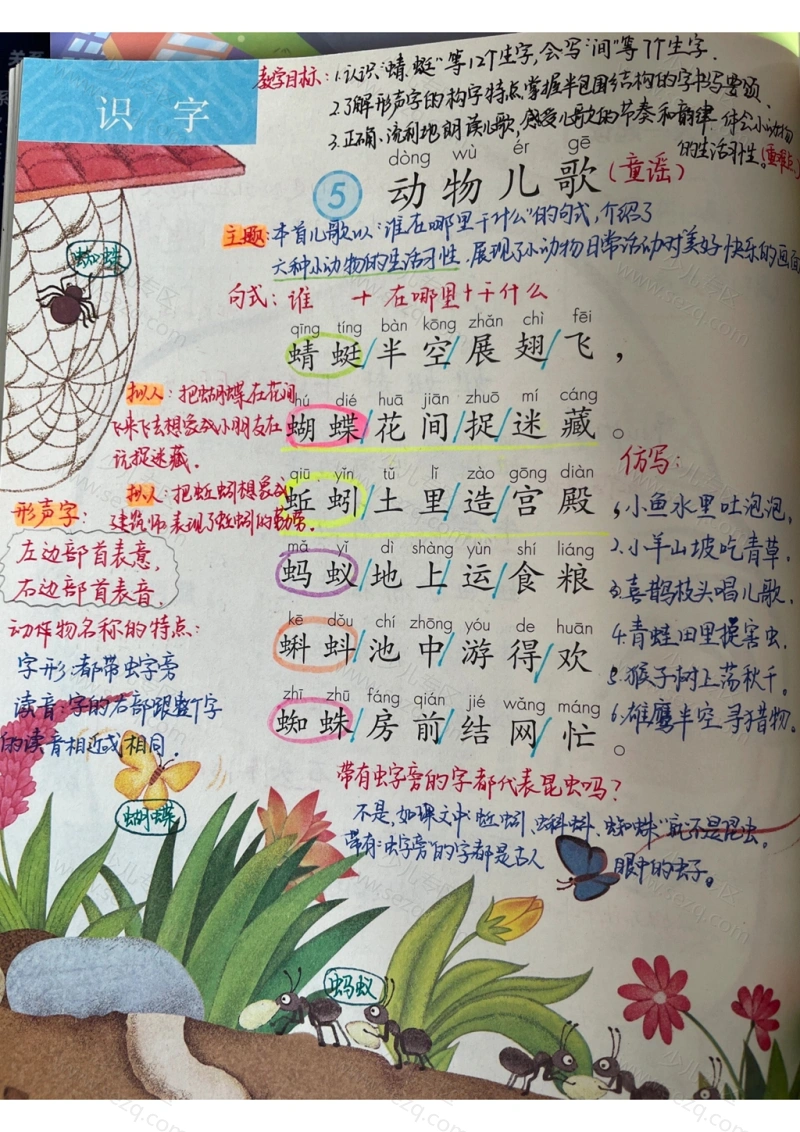 识字
教学目标:1.认识“蜻、蜓”等12个生字,会写“间”等7个生字.
2.了解形声字的构字特点,掌握半包围结构的字书写要领.
3.正确、流利地朗读儿歌,感受儿歌的节奏和韵律.体会小动物
的生活习性。(重难点)
dòng wù ér gē
5 动物儿歌(童谣)
主题:本首儿歌以“谁在哪里干什么”的句式,介绍了
六种小动物的生活习性.展现了小动物日常活动时美好快乐的画面
句式:谁 + 在哪里+干什么
蜘蛛
qīng tíng bàn kōng zhǎn chì fēi
蜻蜓/半空/展翅飞,
hú dié huā jiān zhuō mí cáng
蝴蝶/花间/捉迷藏。
拟人:把蝴蝶在花间
飞来飞去想象成小朋友在
玩捉迷藏.
qiū yǐn tǔ lǐ zào gōng diàn
蚯蚓/土里/造宫殿
拟人:把蚯蚓想象成
建筑师表现了蚯蚓的勤劳.
mǎ yǐ dì shàng yùn shí liáng
蚂蚁/地上/运食粮
kē dǒu chí zhōng yóu de huān
蝌蚪/池中/游得欢
zhī zhū fáng qián jié wǎng máng
蜘蛛/房前/结网忙。
形声字:
左边部首表意,
右边部首表音.
动作物名称的特点:
字形:都带虫字旁
读音:字的右部跟整个字
的读音相近或相同.
仿写:
1,小鱼水里吐泡泡,
2.小羊山坡吃青草.
3.喜鹊枝头唱儿歌.
4.青蛙田里捉害虫.
5.猴子树上荡秋千。
6.雄鹰半空寻猎物.
带有虫字旁的字都代表昆虫吗?
不是.如课文中“蚯蚓、蝌蚪、蜘蛛”就不是昆虫.
带有“虫字旁”的字都是古人眼中的虫子。
蝴蝶
蚂蚁
少儿专区
www.sezq.com